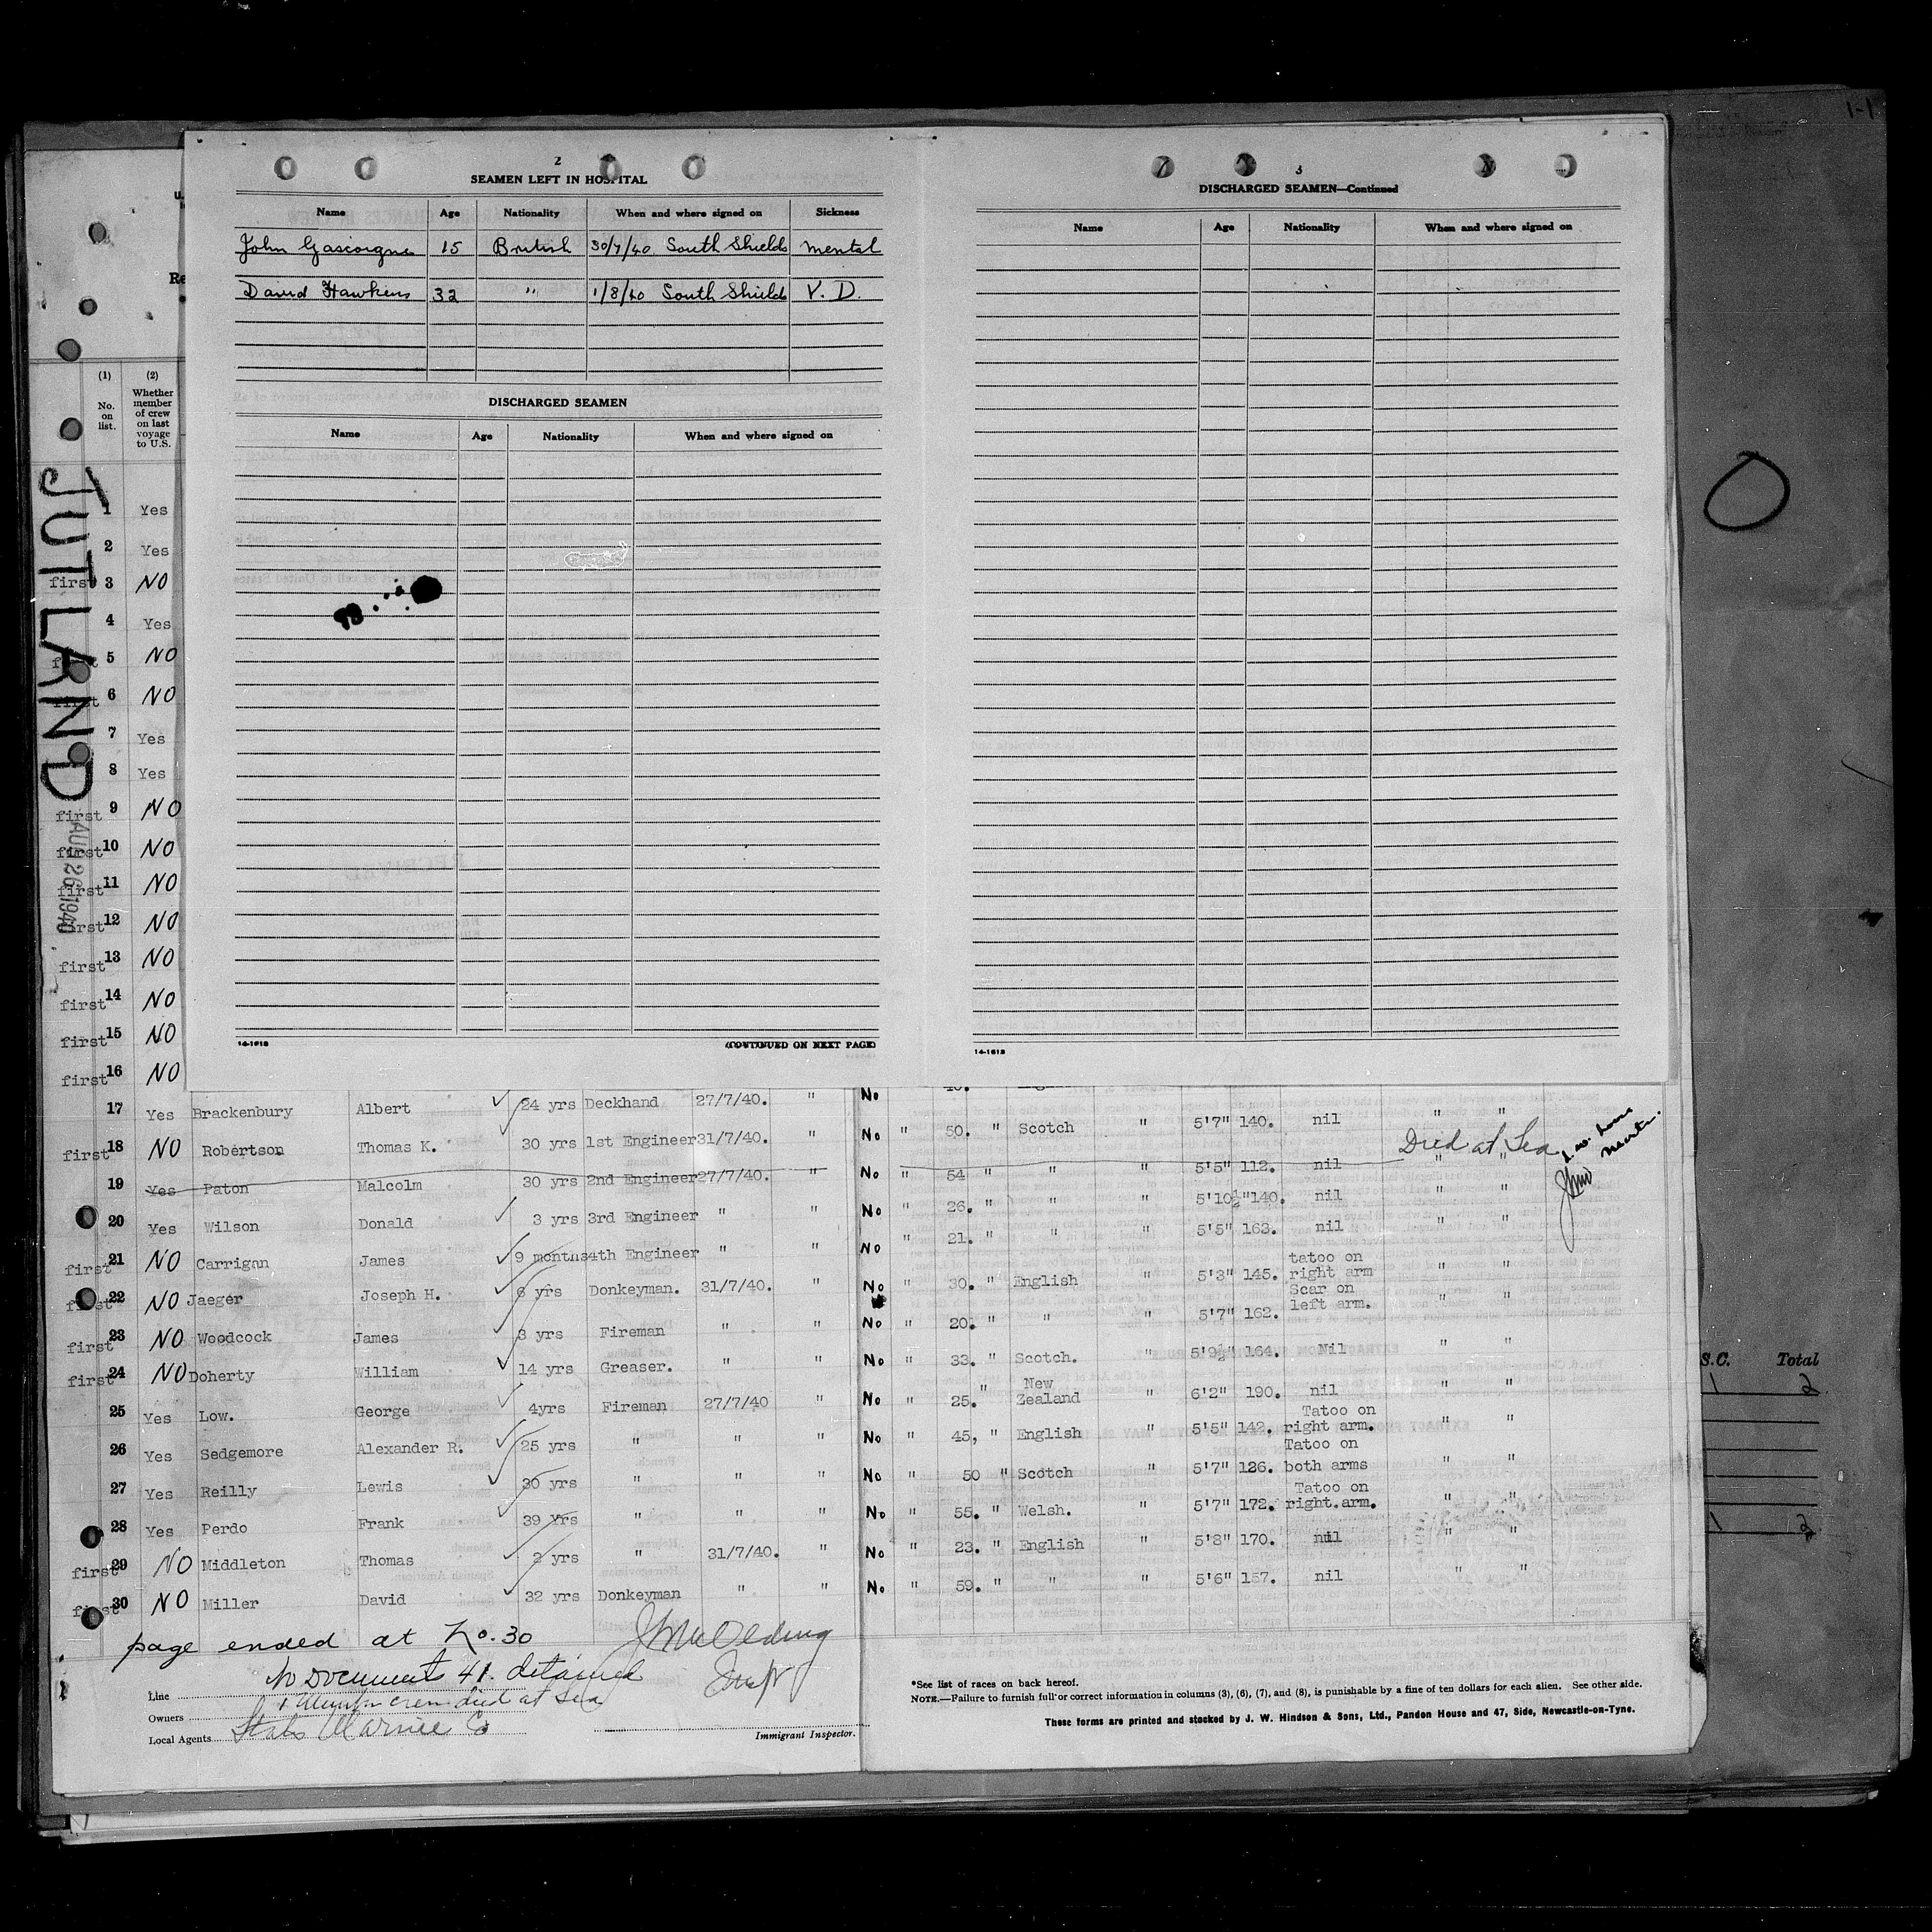 1-1
2
SEAMEN LEFT IN HOSPITAL
Name Age Nationality When and where signed on Sickness
John Gascoigne 15 British 30/7/40 South Shields mental
David Hawkins 32 " 1/8/40 South Shields V. D.
DISCHARGED SEAMEN
Name Age Nationality When and where signed on
14-1613
(CONTINUED ON NEXT PAGE)
3
DISCHARGED SEAMEN—Continued
Name Age Nationality When and where signed on
14-1613
(1) (2)
No. on list. Whether member of crew on last voyage to U.S.
JUTLAND
AUG 26 1940
1 Yes
2 Yes
first 3 NO
4 Yes
5 NO
first 6 NO
7 Yes
8 Yes
first 9 NO
first 10 NO
first 11 NO
first 12 NO
first 13 NO
first 14 NO
first 15 NO
first 16 NO
17 Yes Brackenbury Albert 24 yrs Deckhand 27/7/40. " No " 50. " Scotch " 5'7" 140. nil " "
first 18 NO Robertson Thomas K. 30 yrs 1st Engineer 31/7/40. " No
Died at Sea
19 Yes Paton Malcolm 30 yrs 2nd Engineer 27/7/40. " No " 54 " " " 5'5" 112. nil " "
20 Yes Wilson Donald 3 yrs 3rd Engineer " " No " 26. " " " 5'10½" 140. nil " "
first 21 NO Carrigan James 9 months 4th Engineer " " No " 21. " " " 5'5" 163. nil " "
first 22 NO Jaeger Joseph H. 6 yrs Donkeyman. 31/7/40. " No " 30. " English " 5'3" 145. tatoo on right arm " "
first 23 NO Woodcock James 3 yrs Fireman " " No " 20. " " " 5'7" 162. Scar on left arm. " "
first 24 NO Doherty William 14 yrs Greaser. " " No " 33. " Scotch. " 5'9½" 164. Nil " "
25 Yes Low. George 4yrs Fireman 27/7/40 " No " 25. " New Zealand " 6'2" 190. nil " "
26 Yes Sedgemore Alexander R. 25 yrs " " " No " 45, " English " 5'5" 142. Tatoo on right arm. " "
27 Yes Reilly Lewis 30 yrs " " " No " 50 " Scotch " 5'7" 126. Tatoo on both arms " "
28 Yes Perdo Frank 39 yrs " " " No " 55. " Welsh. " 5'7" 172. Tatoo on right.arm. " "
first 29 NO Middleton Thomas 2 yrs " 31/7/40. " No " 23. " English " 5'8" 170. nil " "
first 30 NO Miller David 32 yrs Donkeyman " " No " 59. " " " 5'6" 157. nil " "
page ended at No. 30
No Document 41. detained
Line
1 Member crew died at Sea
Owners
Local Agents States Marine Co
Immigrant Inspector.
*See list of races on back hereof.
NOTE.—Failure to furnish full or correct information in columns (3), (6), (7), and (8), is punishable by a fine of ten dollars for each alien. See other side.
These forms are printed and stocked by J. W. Hindson & Sons, Ltd., Pandon House and 47, Side, Newcastle-on-Tyne.
S.C. Total
1 2
1 2